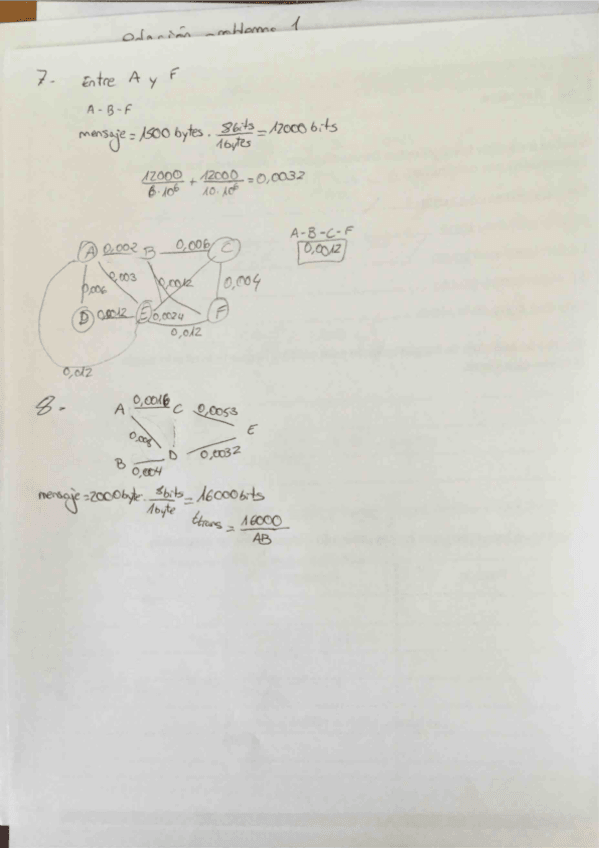 problema 1
7- Entre A y F
A-B-F
mensaje = 1500 bytes · 8bits/1bytes = 12000 bits
12000/6·10⁶ + 12000/10·10⁶ = 0,0032
A-B-C-F
0,0012
A 0,002 B 0,006 C
0,006 0,003 0,0012 0,004
D 0,0012 E 0,0024 F
0,012
0,012
8-
A 0,0016 C 0,0053
E
0,008 D 0,0032
B 0,004
mensaje = 2000 byte · 8bits/1byte = 16000 bits
ttrans = 16000/AB